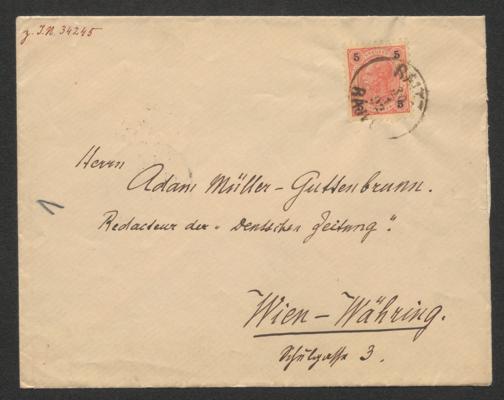 z. I.N. 34245
5 5
5
RAIT-
Herrn
Adam Müller-Guttenbrunn.
Redacteur der „Deutschen Zeitung“.
Wien-Währing.
Schulgasse 3.
1